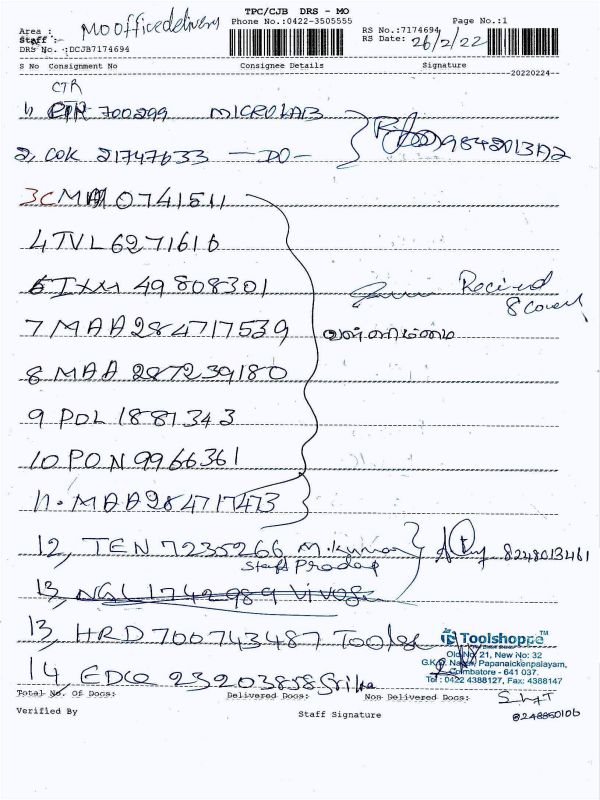 TPC/CJB DRS - MO
MO office delivery
Area :
Staff :
Phone No.:0422-3505555
Page No.:1
RS No.:7174694
RS Date: 26/2/22
DRS No. :DCJB7174694
S No Consignment No Consignee Details Signature
20220224
CTR
1, 700299 MICROLAB
2, COK 21747633 -DO-
3 CMA 0741511
4 TVL 6271616
6 IXM 49808301
7 MAA 284717539
8 MAA 287239180
9 POL 1881343
10 PON 9966361
11. MAA 284717473
8 cover
12, TEN 7235266 M.kumar
Staff Pradap
8248013461
13, NGL 1742989
13, HRD 700743487
Toolshoppe™
Old No: 21, New No: 32
G.K.D. Nagar, Papanaickenpalayam,
Coimbatore - 641 037.
Tel : 0422 4388127, Fax: 4388147
14 EDCO 23203858
Total No. Of Docs: Delivered Docs: Non Delivered Docs:
Verified By Staff Signature